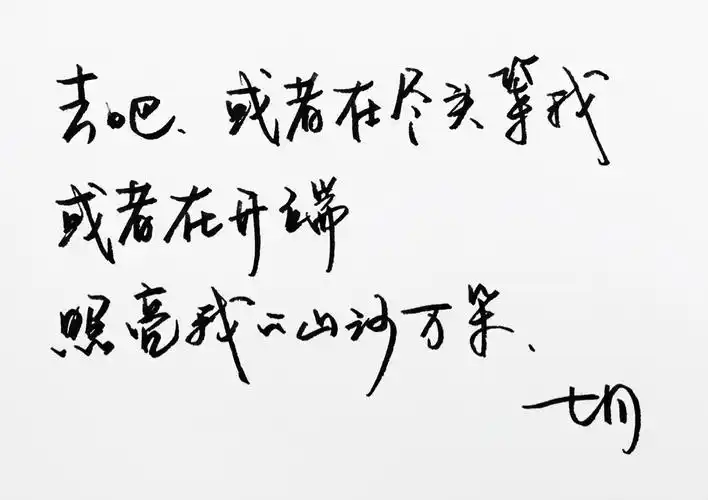 去吧、或者在尽头等我
或者在开端
照亮我的山河万朵、
七月